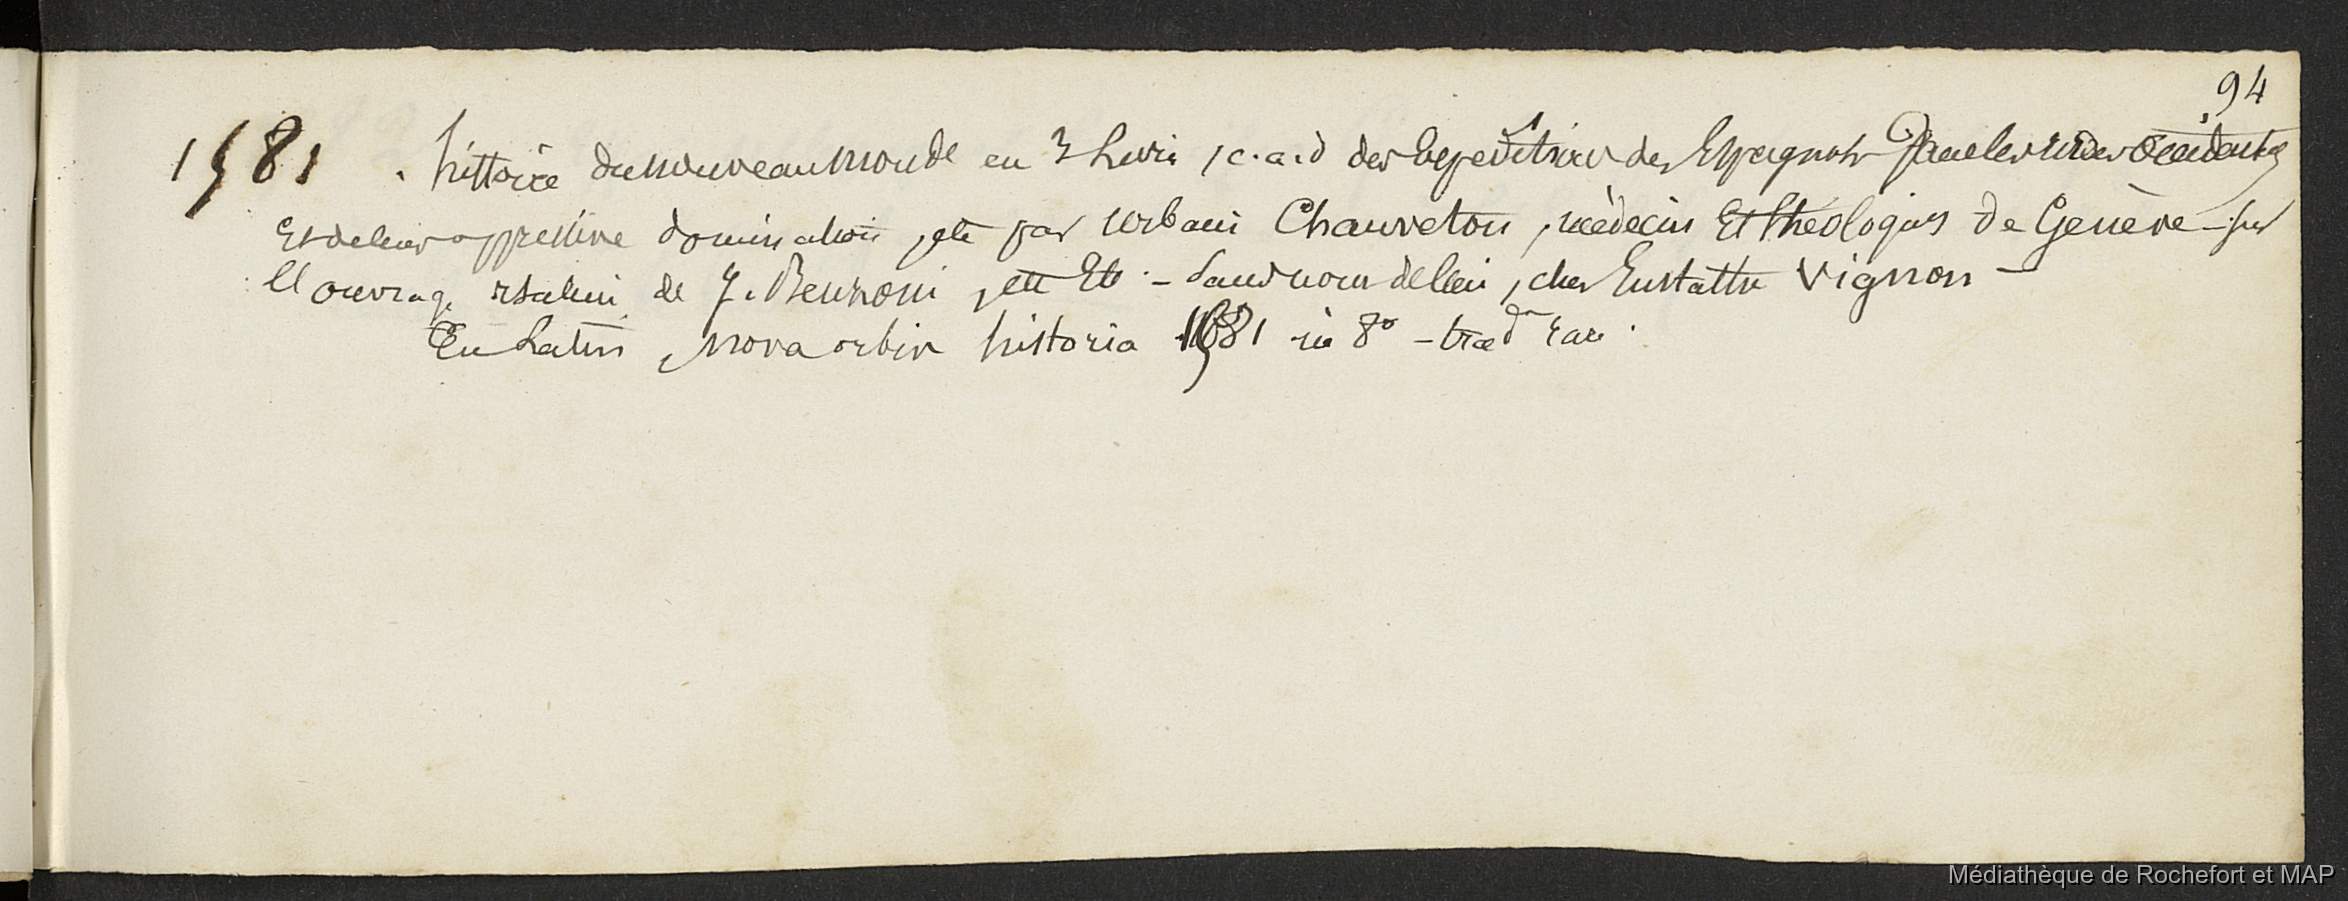 94
1581. histoire du nouveau monde en 3 Livres, c.a.d des Expeditions des Espagnols dans les Indes occidentales
Et de leur oppressive domination, etc par Urbain Chauveton, médecin Et théologien De Genève - sur
l'ouvrage italien de J. Benzoni, etc Etc - Sans nom de lieu, chez Eustathe Vignon -
En Latin, nova orbis historia 1581 in 8° - trad.on rare.
Médiathèque de Rochefort et MAP